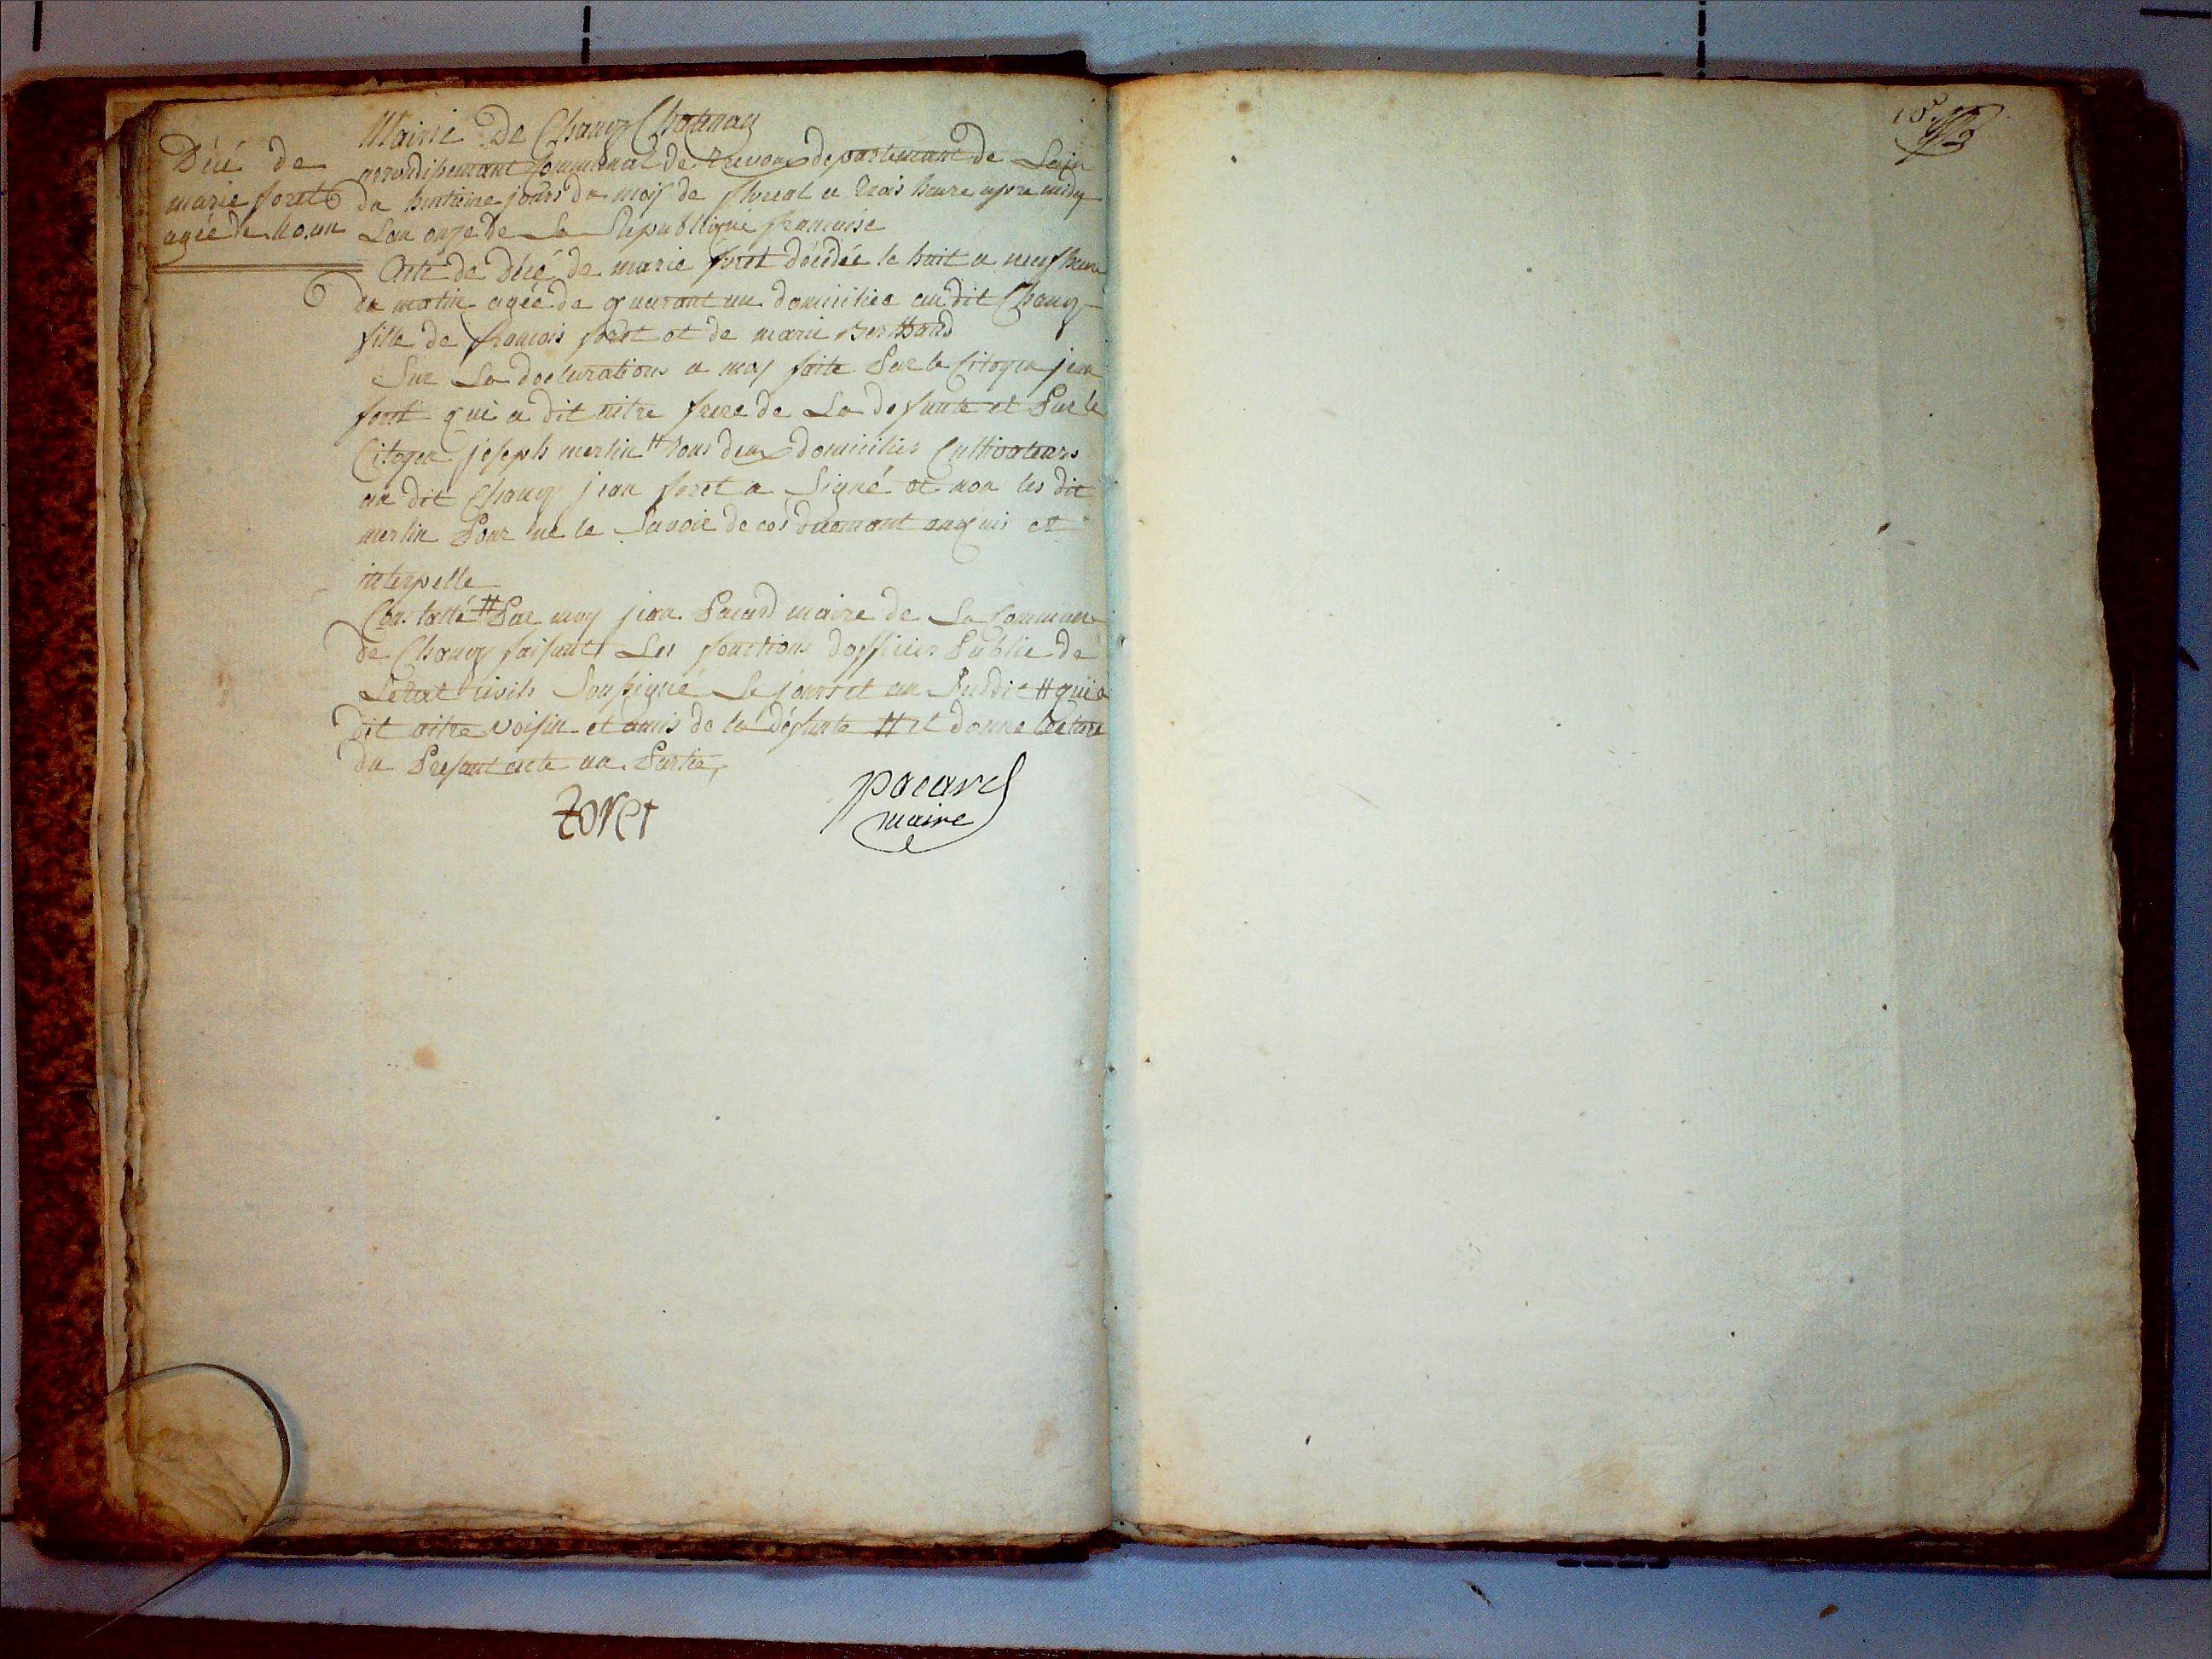 Mairie De Chaug Chatenay
Décé de
marie foret
agée de 40. an
arrondisemant Communal de trevoux departemant de Lain
du huitieme jours du mois de floreal a trois heure apre midy
Lan onze de La Republique francoise
Acte de Décé de marie foret décédée le huit a neuf heure
du matin agée de quarant an domiciliée au dit Chaug
fille de francois foret et de marie Berthaud
Sur La declarations a moy faite Par le Citoyen jean
foret qui a dit aitre frere de La defunte et Par le
Citoyen joseph merlin # tous deux domicilies Cultivateurs
au dit Chaug jean foret a Signé et non les dit
merlin Pour ne le Savoir de ces duemant anquis et
interpelle
Constatté # Par moy jean Pacard maire de La Commune
de Chaug faisant Les fonctions dofficier Public de
Letat civile Soussigné Le jours et an Susdit # qui a
dit aitre voisin et amis de la défunte # et donné Lecture
du Present acte au Partie,
foret
pacard
maire
10e